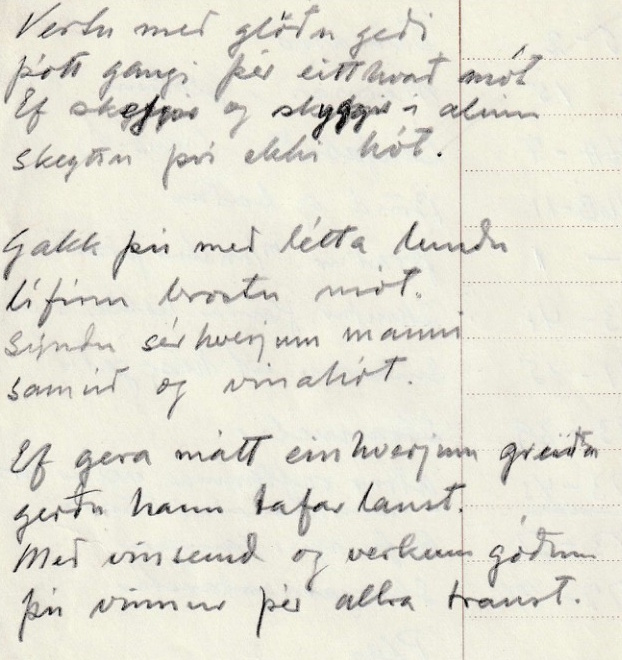 Vertu með glöðu geði
þótt gangi þér eitthvað mót
Ef og skyggir í álinn
skeyttu því ekki hót.

Gakk þú með létta lundu
lífinu brostu mót.
Sýndu sérhverjum manni
samúð og vinahót.

Ef gera mátt einhverjum greiða
gerðu hann tafarlaust.
Með vinsemd og verkum góðum
þú vinnur þér allra traust.